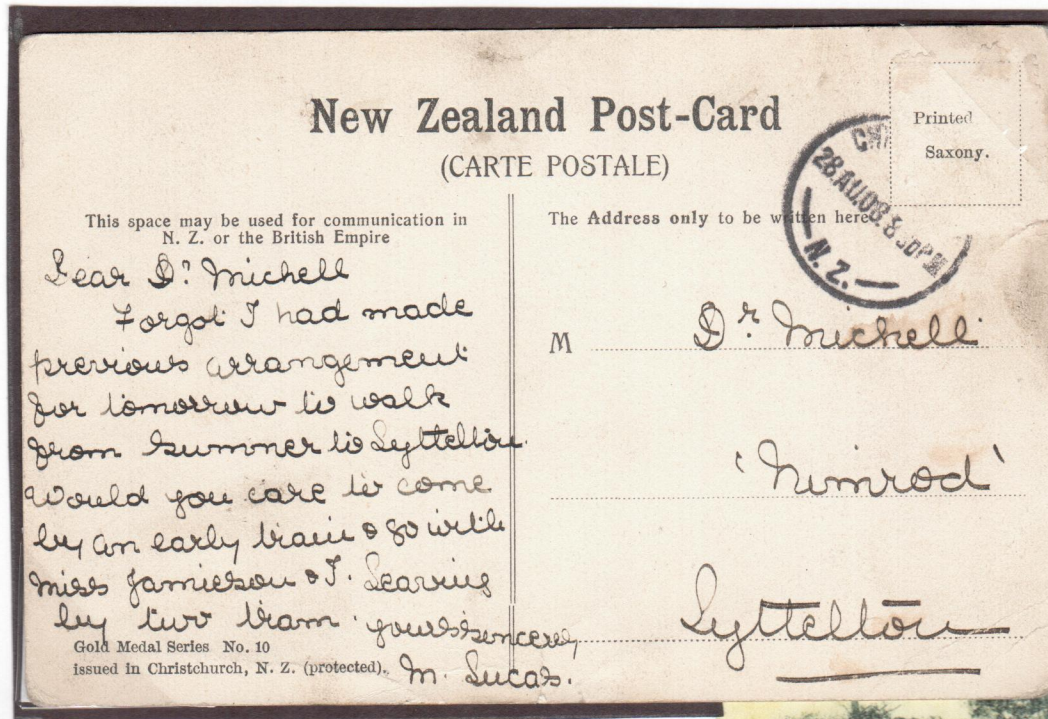 New Zealand Post-Card
(CARTE POSTALE)
Printed
Saxony.
28.AU.08.8
N.Z.
This space may be used for communication in
N. Z. or the British Empire
Dear Dr. Michell
Forgot I had made
previous arrangement
for tomorrow to walk
from Sumner to Lyttelton.
Would you care to come
by an early train & go with
Miss Jamieson & I. Leaving
by two tram. yours sincerely
M. Lucas.
Gold Medal Series No. 10
issued in Christchurch, N. Z. (protected).
The Address only to be written here
M Dr. Michell
'Nimrod'
Lyttelton